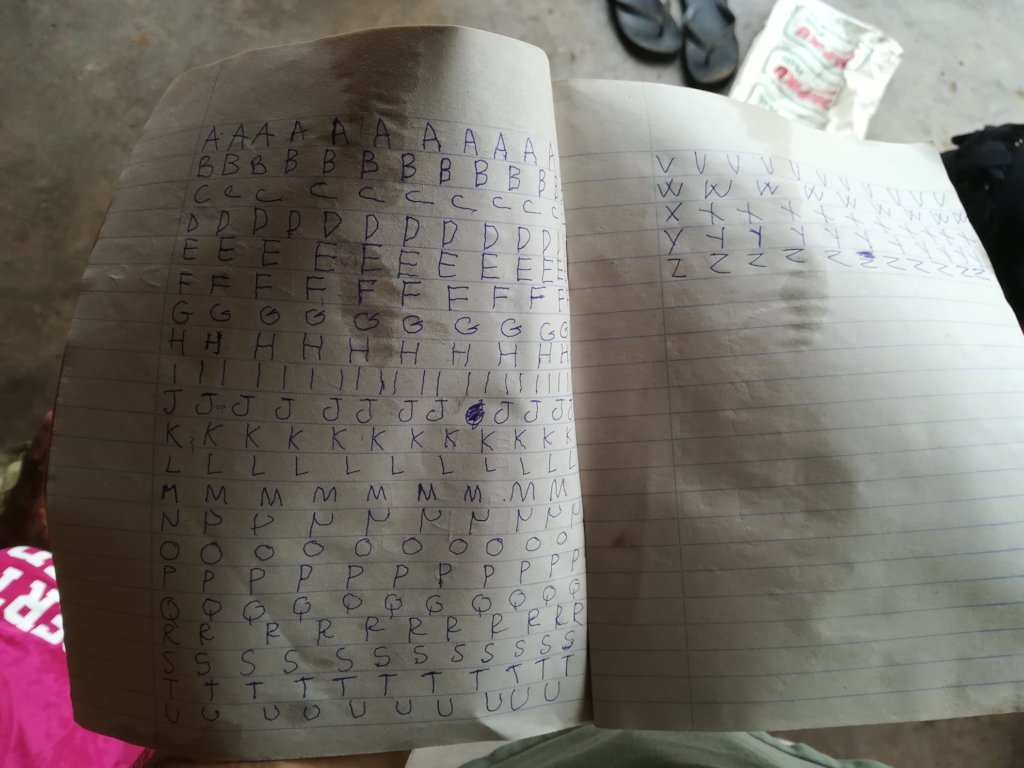 A A A A A A A A A A A
B B B B B B B B B B B B
C C C C C C C C C C
D D D D D D D D D D D
E E E E E E E E E E
F F F F F F F F F
G G G G G G G G G G
H H H H H H H H H
I I I I I I I I I I I I I I I I
J J J J J J J J J J J J
K K K K K K K K K K K
L L L L L L L L L L
M M M M M M M M M
N P P N N N N N N N
O O O O O O O O O O
P P P P P P P P P P
Q Q Q Q Q Q Q Q Q Q
R R R R R R R R R R R
S S S S S S S S S S S
T T T T T T T T T T
U U U U U U U U U U
V V V V V V V V V V V
W W W W W W W W W
X X X X X X X X X X
Y Y Y Y Y Y Y Y Y Y
Z Z Z Z Z Z Z Z Z Z Z